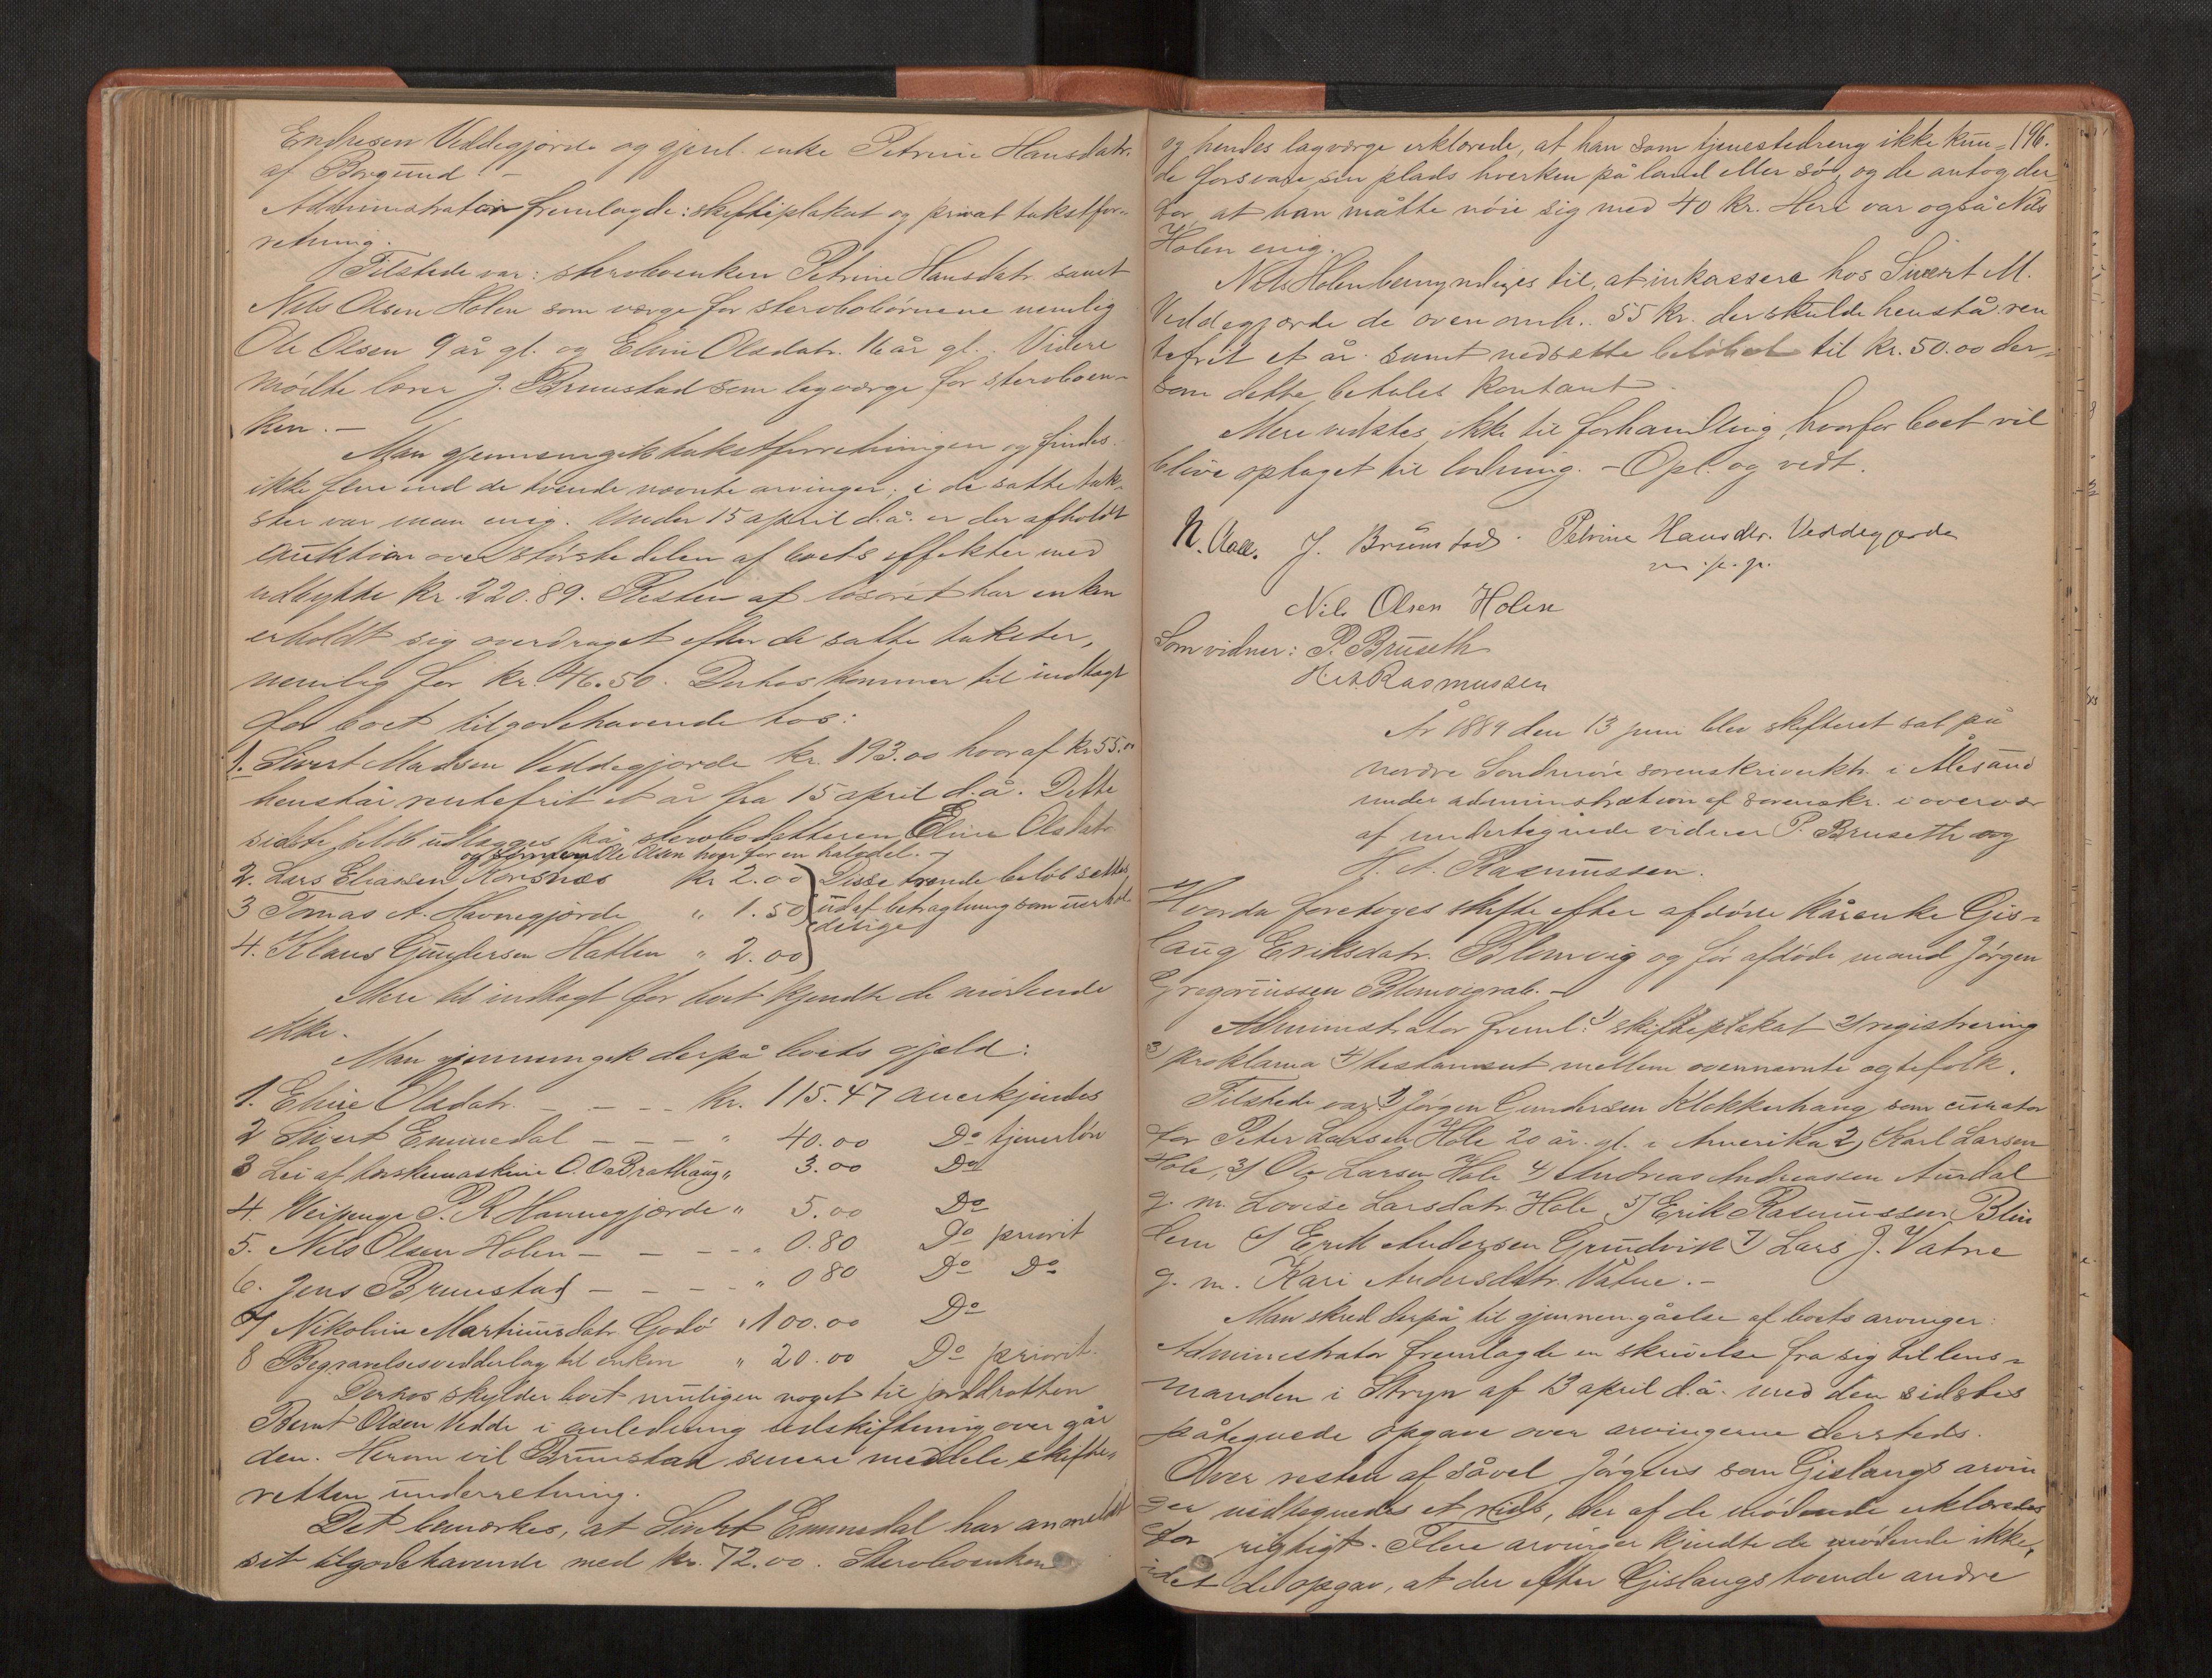 Endresen Veddegjærde og gjenl. enke Petrine Hansdatr.
af Borgund. –
Administrator fremlagde: skifteplakat og privat takstfor-
retning.
Tilstede var: sterboenken Petrine Hansdatr. samt
Nils Olsen Holen som værge for sterbobørnene nemlig
Ole Olsen 9 år gl. og Eline Olsdatr. 16 år gl. Videre
mødte lærer J. Brunstad som lagværge for sterboen-
ken. –
Man gjennemgik takstforretningen og findes
ikke flere end de tvende nævnte arvinger; i de satte tak-
ster var man enig. Under 15 april d.å. er der afholdt
auktion over største delen af boets effekter med
udbytte kr. 220.89. Resten af løsøret har enken
erholdt sig overdraget efter de satte takster,
nemlig for kr. 46.50. Derhos kommer til indtægt
for boet tilgodehavende hos:
1. Sivert Madsen Veddegjærde kr. 193.00 hvoraf kr 55.00
henstår rentefrit et år fra 15 april d.å. Dette
sidste beløb udlægges på sterbodatteren Eline Olsdatr.
og sønnen Ole Olsen hver for en halvdel. –
2. Lars Eliassen Korsnæs kr 2.00 } Disse trende beløb sættes
3 Tomas A. Havnegjærde " 1.50 } ud af betragtning som uerhol-
delige
4. Klaus Gundersen Hatlen " 2.00 }
Mere til indtægt for boet kjendte de mødende
ikke.
Man gjennemgik derpå boets gjæld:
1. Eline Olsdatr. – – – kr. 115.47 anerkjendes
2 Sivert Emmedal – – – " 40.00 Do tjenerløn
3 Lei af tærskemaskine O. O. Brathaug " 3.00 Do
4. Veipenge P. R. Havnegjærde " 5.00 Do
5. Nils Olsen Holen – – – – " 0.80 Do priorit
6. Jens Brunstad – – – – " 0 80 Do Do
7/ Nikoline Martinusdatr. Godø " 100.00 Do
8 Begravelsesvederlag til enken " 20.00 Do priorit.
Derhos skylder boet muligen noget til jorddrotten
Bernt Olsen Vedde i anledning udskiftning over går
den. Herom vil Brunstad senere meddele skifte-
retten underretning.
Det bemærkes, at Sivert Emmedal har anmeldt
sit tilgodehavende med kr. 72.00. Sterboenken
196.
og hendes lagværge erklærede, at han som tjenestedreng ikke kun-
de forsvare sin plads hverken på land eller sø, og de antog der-
for, at han måtte nøie sig med 40 kr. Heri var også Nils
Holen enig.
Nils Holen bemyndiges til, at inkassere hos Sivert M.
Veddegjærde de ovenomh. 55 kr. der skulde henstå ren
tefrit et år samt nedsætte beløbet til kr. 50.00 der-
som dette betales kontant.
Mere vidstes ikke til forhandling, hvorfor boet vil
blive optaget til lodning. – Opl. og vedt.
N. Aall. J. Brunstad. Petrine Hansdtr. Veddegjærde
m. p. p.
Nils Olsen Holen
Som vidner: P. Bruseth
H. A. Rasmussen
År 1889 den 13 juni blev skifteret sat på
nordre Søndmøre sorenskriverktr. i Ålesund
under administration af sorenskr. i overvær
af undertegnede vidner P. Bruseth og
H. A. Rasmussen.
Hvorda foretoges skifte efter afdøde kårenke Gis-
laug Eriksdatr. Blomvig og før afdøde mand Jørgen
Gregoriussen Blomvigvab. –
Administrator freml. 1) skifteplakat 2) registrering
3) proklama 4) testament mellem ovennævnte ægtefolk.
Tilstede var 1) Jørgen Gundersen Klokkerhaug, som curator
for Peter Larsen Hole 20 år gl. i Amerika 2) Karl Larsen
Hole, 3) Ole Larsen Hole 4) Andreas Andreassen Aurdal
g. m. Lovise Larsdatr. Hole 5) Erik Rasmussen Blin
dem 6) Erik Andersen Grundvik 7) Lars J. Vatne
g. m. Kari Andersdtr. Vatne. –
Man skred derpå til gjennemgåelse af boets arvinger:
Administrator fremlagde en skrivelse fra sig til lens-
manden i Stryn af 13 april d.å. med den sidstes
påtegnede opgave over arvingerne dersteds.
Over resten af såvel Jørgens som Gislaugs arvin
ger vedtegnedes et rids, der af de mødende erklæredes
for rigtigt. Flere arvinger kjendte de mødende ikke,
idet de opgav, at der efter Gislaugs tvende andre